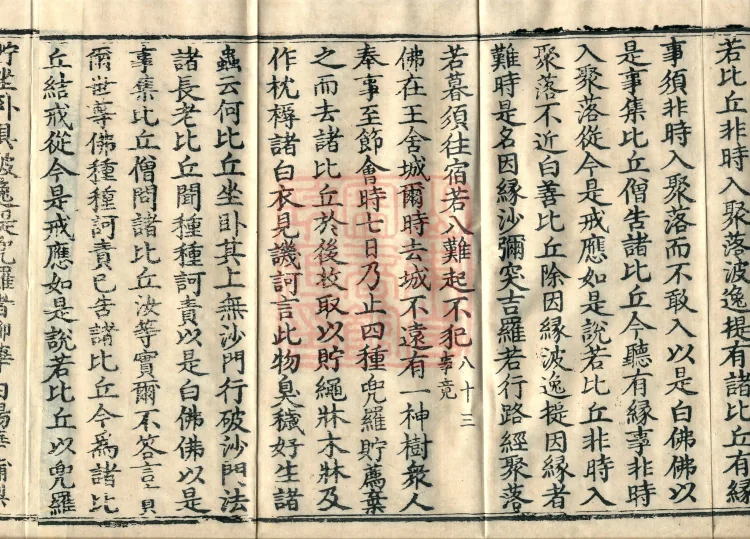 若比丘非時入聚落波逸提有諸比丘有縁
事須非時入聚落而不敢入以是白佛佛以
是事集比丘僧告諸比丘今聽有縁事非時
入聚落從今是戒應如是說若比丘非時入
聚落不近白善比丘除因縁波逸提因縁者
難時是名因縁沙彌突吉羅若行路經聚落
若暮須往宿若八難起不犯八十三事竟
佛在王舍城爾時去城不遠有一神樹衆人
奉事至節會時七日乃止四種兜羅貯薦棄
之而去諸比丘於後收取以貯繩牀木牀及
作枕褥諸白衣見譏訶言此物臭穢好生諸
蟲云何比丘坐卧其上無沙門行破沙門法
諸長老比丘聞種種訶責以是白佛佛以是
事集比丘僧問諸比丘汝等實爾不答言實
爾世尊佛種種訶責已告諸比丘今爲諸比
丘結戒從今是戒應如是說若比丘以兜羅
貯坐卧具波逸提兜羅者柳華白楊華蒲